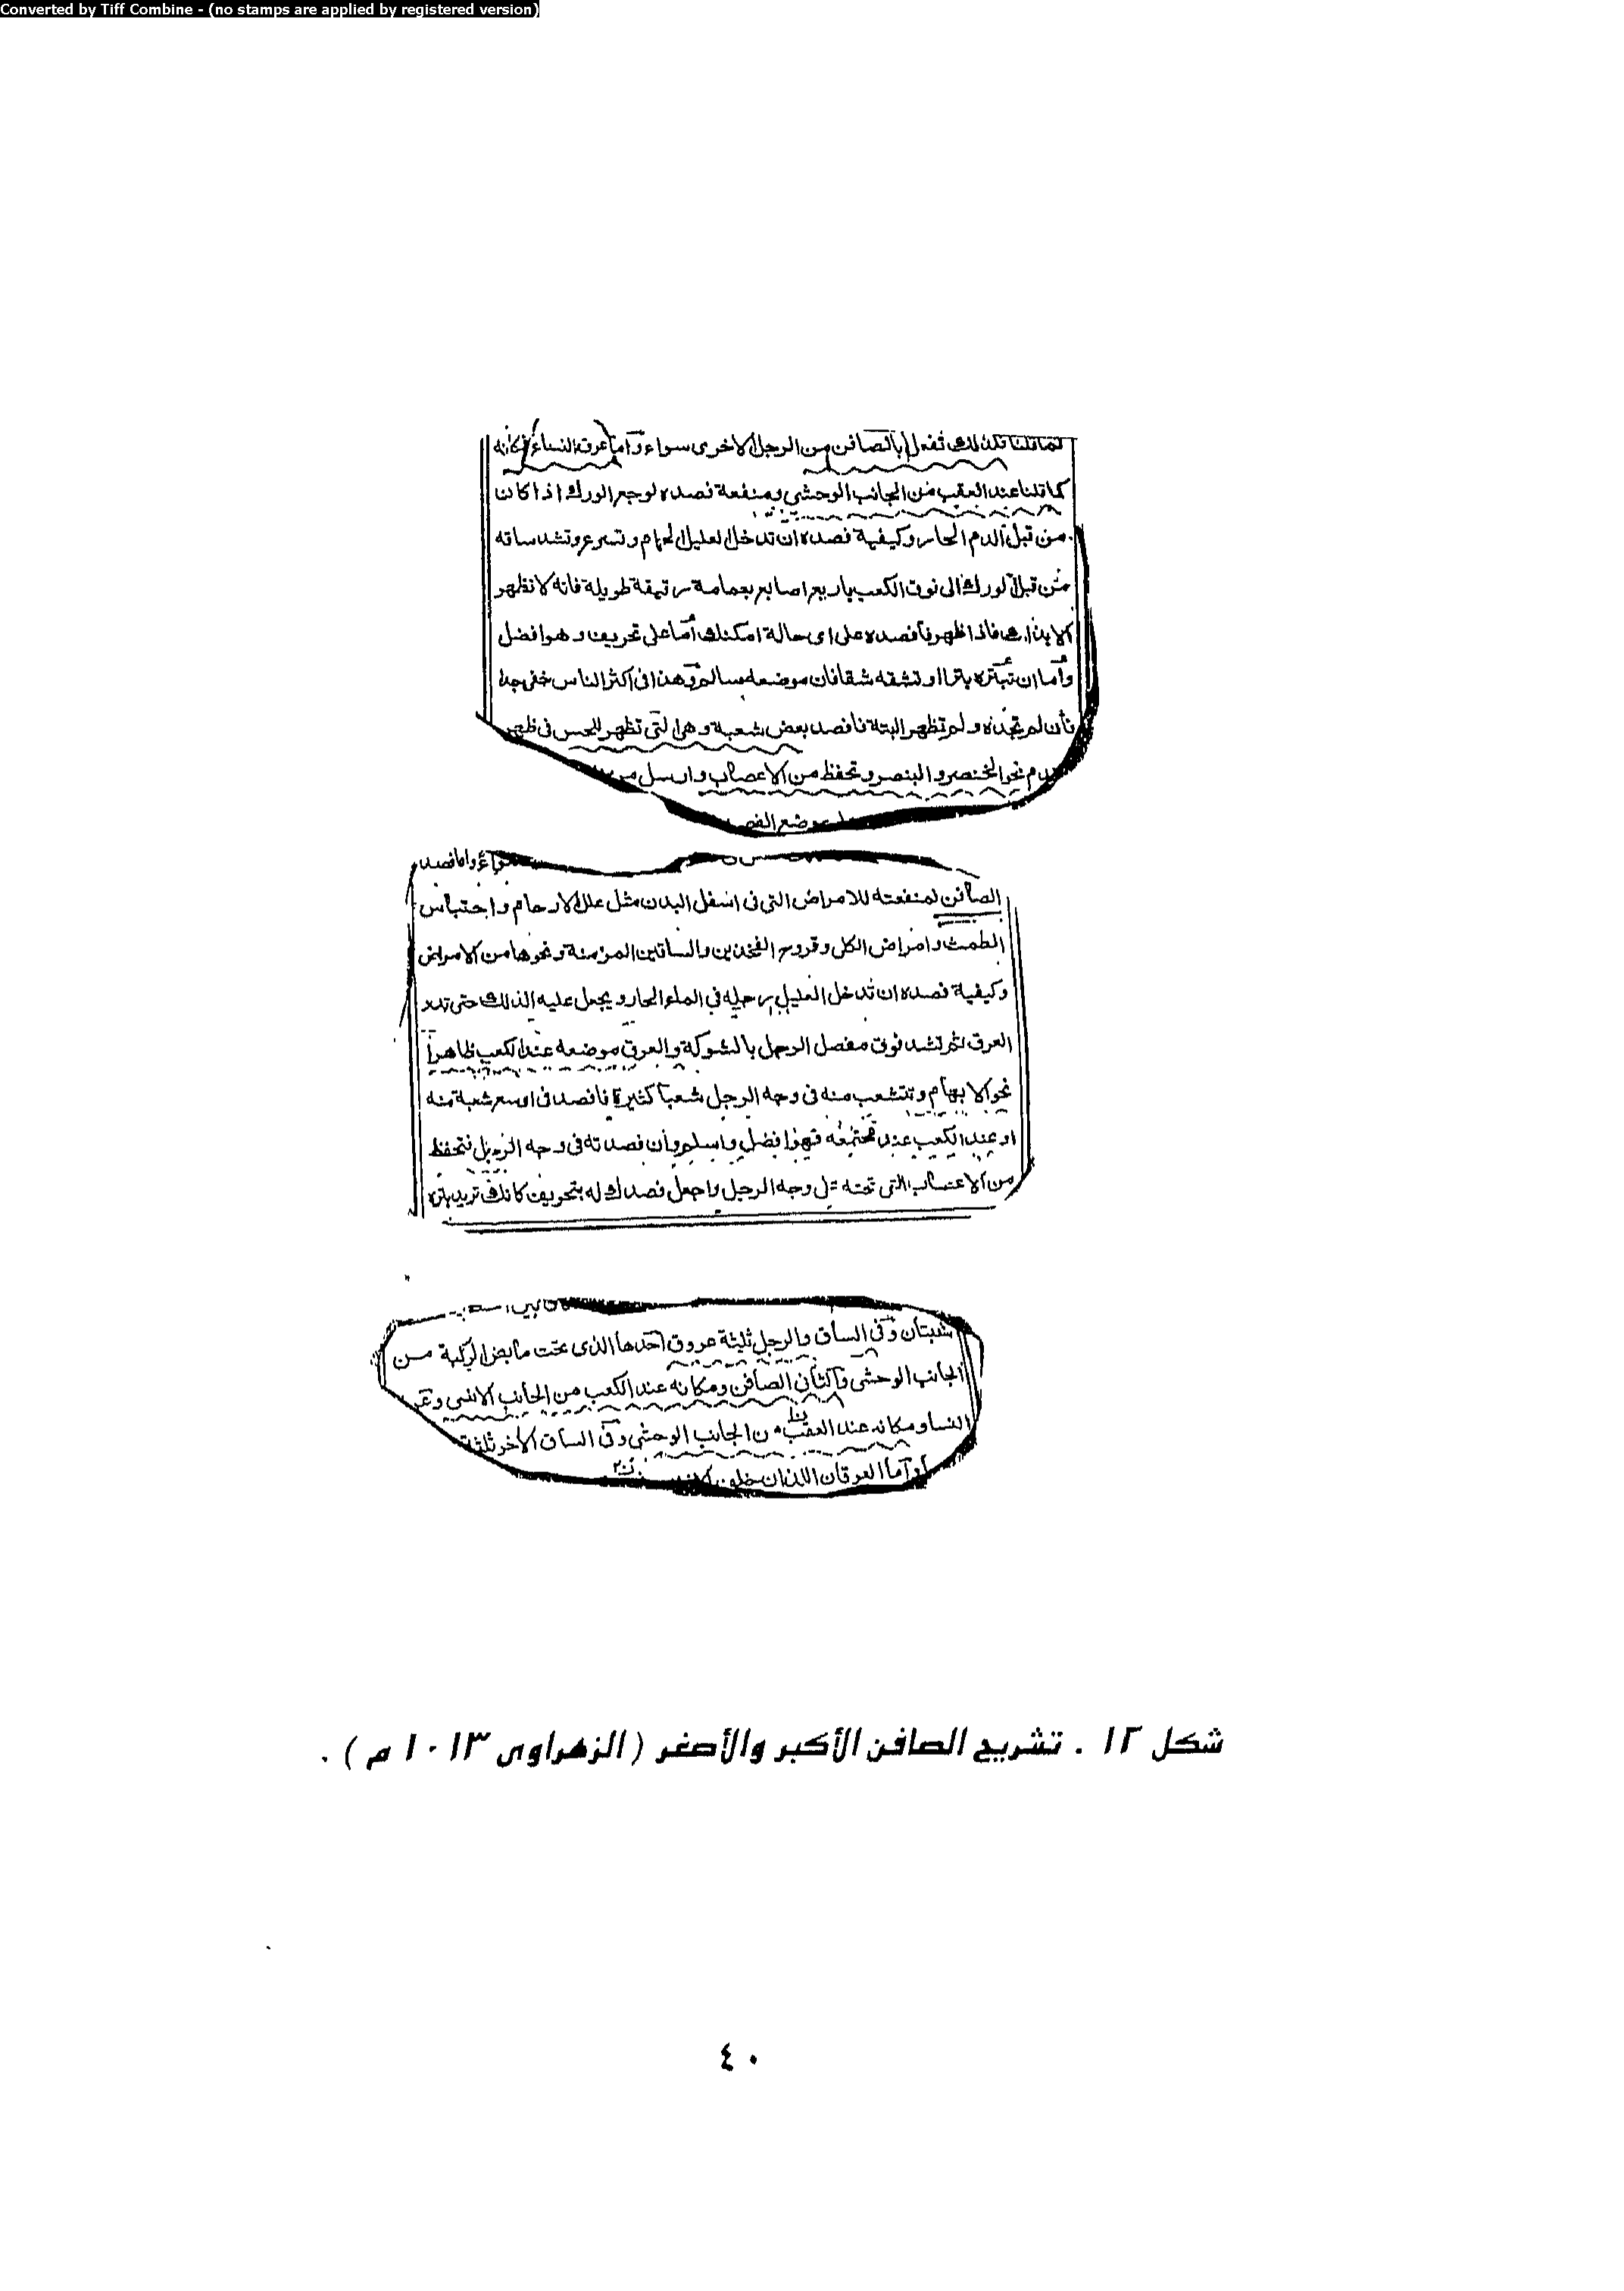 Converted by Tiff Combine - (no stamps are applied by registered version)
تفعل بالصافن من الرجل الاخرى سواء وأما عرق النساء فكانه
كما قلنا عند العقب من الجانب الوحشي ومنفعة فصده لوجع الورك اذا كان
من قبل الدم الحار وكيفية فصده ان تدخل العليل الحمام وتسرع وتشد ساقه
من قبل الورك الى فوق الكعب باربع اصابع بعمامة رقيقة طويلة فانه لا تظهر
الا بذلك فاذا ظهر فافصده على اى حالة امكنك أما على تحريف وهو افضل
وأما ان تبتره بترا او تشقه شقا فان موضعه سالم وهذا فى اكثر الناس خفى جدا
فأن لم تجده ولم تظهر البتة فافصد بعض شعبة وهى التى تظهر للحس فى ظهر
نحو الخنصر والبنصر وتحفظ من الاعصاب وارسل من
موضع الفصد
سواء وأما فصد
الصافن لمنفعته للامراض التى فى اسفل البدن مثل علل الارحام واحتباس
الطمث وامراض الكلى وقروح الفخذين والساقين المزمنة ونحوها من الامراض
وكيفية فصده ان تدخل العليل رجليه في الماء الحار ويجعل عليه الدلك حتى تدر
العرق ثم تشد فوق مفصل الرجل بالشوكة والعرق موضعه عند الكعب ظاهرا
نحو الابهام وتتشعب منه فى وجه الرجل شعبا كثيرة فافصد فى اوسع شعبة منه
او عند الكعب عند مجتمعه فهو افضل واسلم وأن فصدته فى وجه الرجل فتحفظ
من الاعصاب التى تحته وجه الرجل واجعل فصدك له بتحريف كانك تريد بتره
شبتان وفى الساق والرجل ثلثة عروق احدها الذى تحت مابض الركبة من
الجانب الوحشى والثانى الصافن ومكانه عند الكعب من الجانب الانسى
النسا ومكانه عند العقب من الجانب الوحشى وفى الساق الاخر ثلثة
وأما العرقان اللذان خلف
شكل ١٢ . تشريح الصافن الأكبر والأصغر ( الزهراوى ١٠١٣ م ) .
٤٠